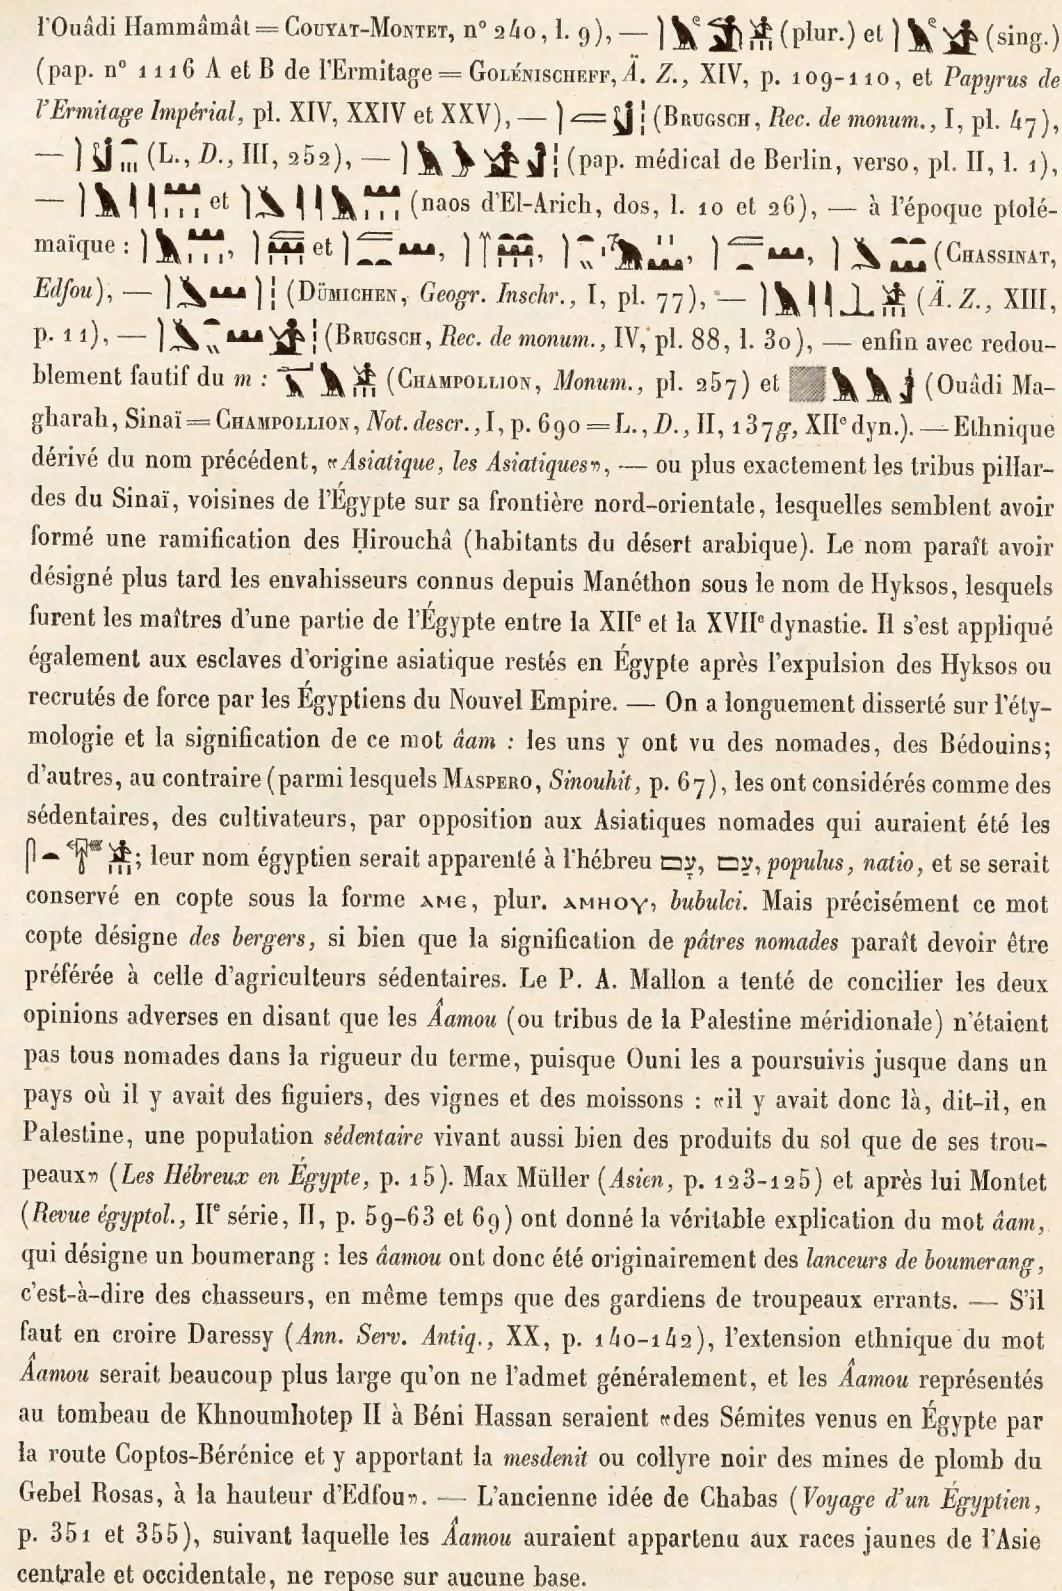 l'Ouâdi Hammâmât = COUYAT-MONTET, n° 240, l. 9), — (plur.) et (sing.)
(pap. n° 1116 A et B de l'Ermitage = GOLÉNISCHEFF, Ä. Z., XIV, p. 109-110, et Papyrus de
l'Ermitage Impérial, pl. XIV, XXIV et XXV), — (BRUGSCH, Rec. de monum., I, pl. 47),
— (L., D., III, 252), — (pap. médical de Berlin, verso, pl. II, l. 1),
— et (naos d'El-Arich, dos, l. 10 et 26), — à l'époque ptolé-
maïque : , et , , , , (CHASSINAT,
Edfou), — (DÜMICHEN, Geogr. Inschr., I, pl. 77), — (Ä. Z., XIII,
p. 11), — (BRUGSCH, Rec. de monum., IV, pl. 88, l. 30), — enfin avec redou-
blement fautif du m : (CHAMPOLLION, Monum., pl. 257) et (Ouâdi Ma-
gharah, Sinaï = CHAMPOLLION, Not. descr., I, p. 690 = L., D., II, 137g, XIIe dyn.). — Ethnique
dérivé du nom précédent, «Asiatique, les Asiatiques», — ou plus exactement les tribus pillar-
des du Sinaï, voisines de l'Égypte sur sa frontière nord-orientale, lesquelles semblent avoir
formé une ramification des Ḥirouchâ (habitants du désert arabique). Le nom paraît avoir
désigné plus tard les envahisseurs connus depuis Manéthon sous le nom de Hyksos, lesquels
furent les maîtres d'une partie de l'Égypte entre la XIIe et la XVIIe dynastie. Il s'est appliqué
également aux esclaves d'origine asiatique restés en Égypte après l'expulsion des Hyksos ou
recrutés de force par les Égyptiens du Nouvel Empire. — On a longuement disserté sur l'éty-
mologie et la signification de ce mot âam : les uns y ont vu des nomades, des Bédouins;
d'autres, au contraire (parmi lesquels MASPERO, Sinouhit, p. 67), les ont considérés comme des
sédentaires, des cultivateurs, par opposition aux Asiatiques nomades qui auraient été les
; leur nom égyptien serait apparenté à l'hébreu עָם, עַם, populus, natio, et se serait
conservé en copte sous la forme ⲁⲙⲉ, plur. ⲁⲙⲏⲟⲩ, bubulci. Mais précisément ce mot
copte désigne des bergers, si bien que la signification de pâtres nomades paraît devoir être
préférée à celle d'agriculteurs sédentaires. Le P. A. Mallon a tenté de concilier les deux
opinions adverses en disant que les Âamou (ou tribus de la Palestine méridionale) n'étaient
pas tous nomades dans la rigueur du terme, puisque Ouni les a poursuivis jusque dans un
pays où il y avait des figuiers, des vignes et des moissons : «il y avait donc là, dit-il, en
Palestine, une population sédentaire vivant aussi bien des produits du sol que de ses trou-
peaux» (Les Hébreux en Égypte, p. 15). Max Müller (Asien, p. 123-125) et après lui Montet
(Revue égyptol., IIe série, II, p. 59-63 et 69) ont donné la véritable explication du mot âam,
qui désigne un boumerang : les âamou ont donc été originairement des lanceurs de boumerang,
c'est-à-dire des chasseurs, en même temps que des gardiens de troupeaux errants. — S'il
faut en croire Daressy (Ann. Serv. Antiq., XX, p. 140-142), l'extension ethnique du mot
Âamou serait beaucoup plus large qu'on ne l'admet généralement, et les Âamou représentés
au tombeau de Khnoumhotep II à Béni Hassan seraient «des Sémites venus en Égypte par
la route Coptos-Bérénice et y apportant la mesdenit ou collyre noir des mines de plomb du
Gebel Rosas, à la hauteur d'Edfou». — L'ancienne idée de Chabas (Voyage d'un Égyptien,
p. 351 et 355), suivant laquelle les Âamou auraient appartenu aux races jaunes de l'Asie
centrale et occidentale, ne repose sur aucune base.